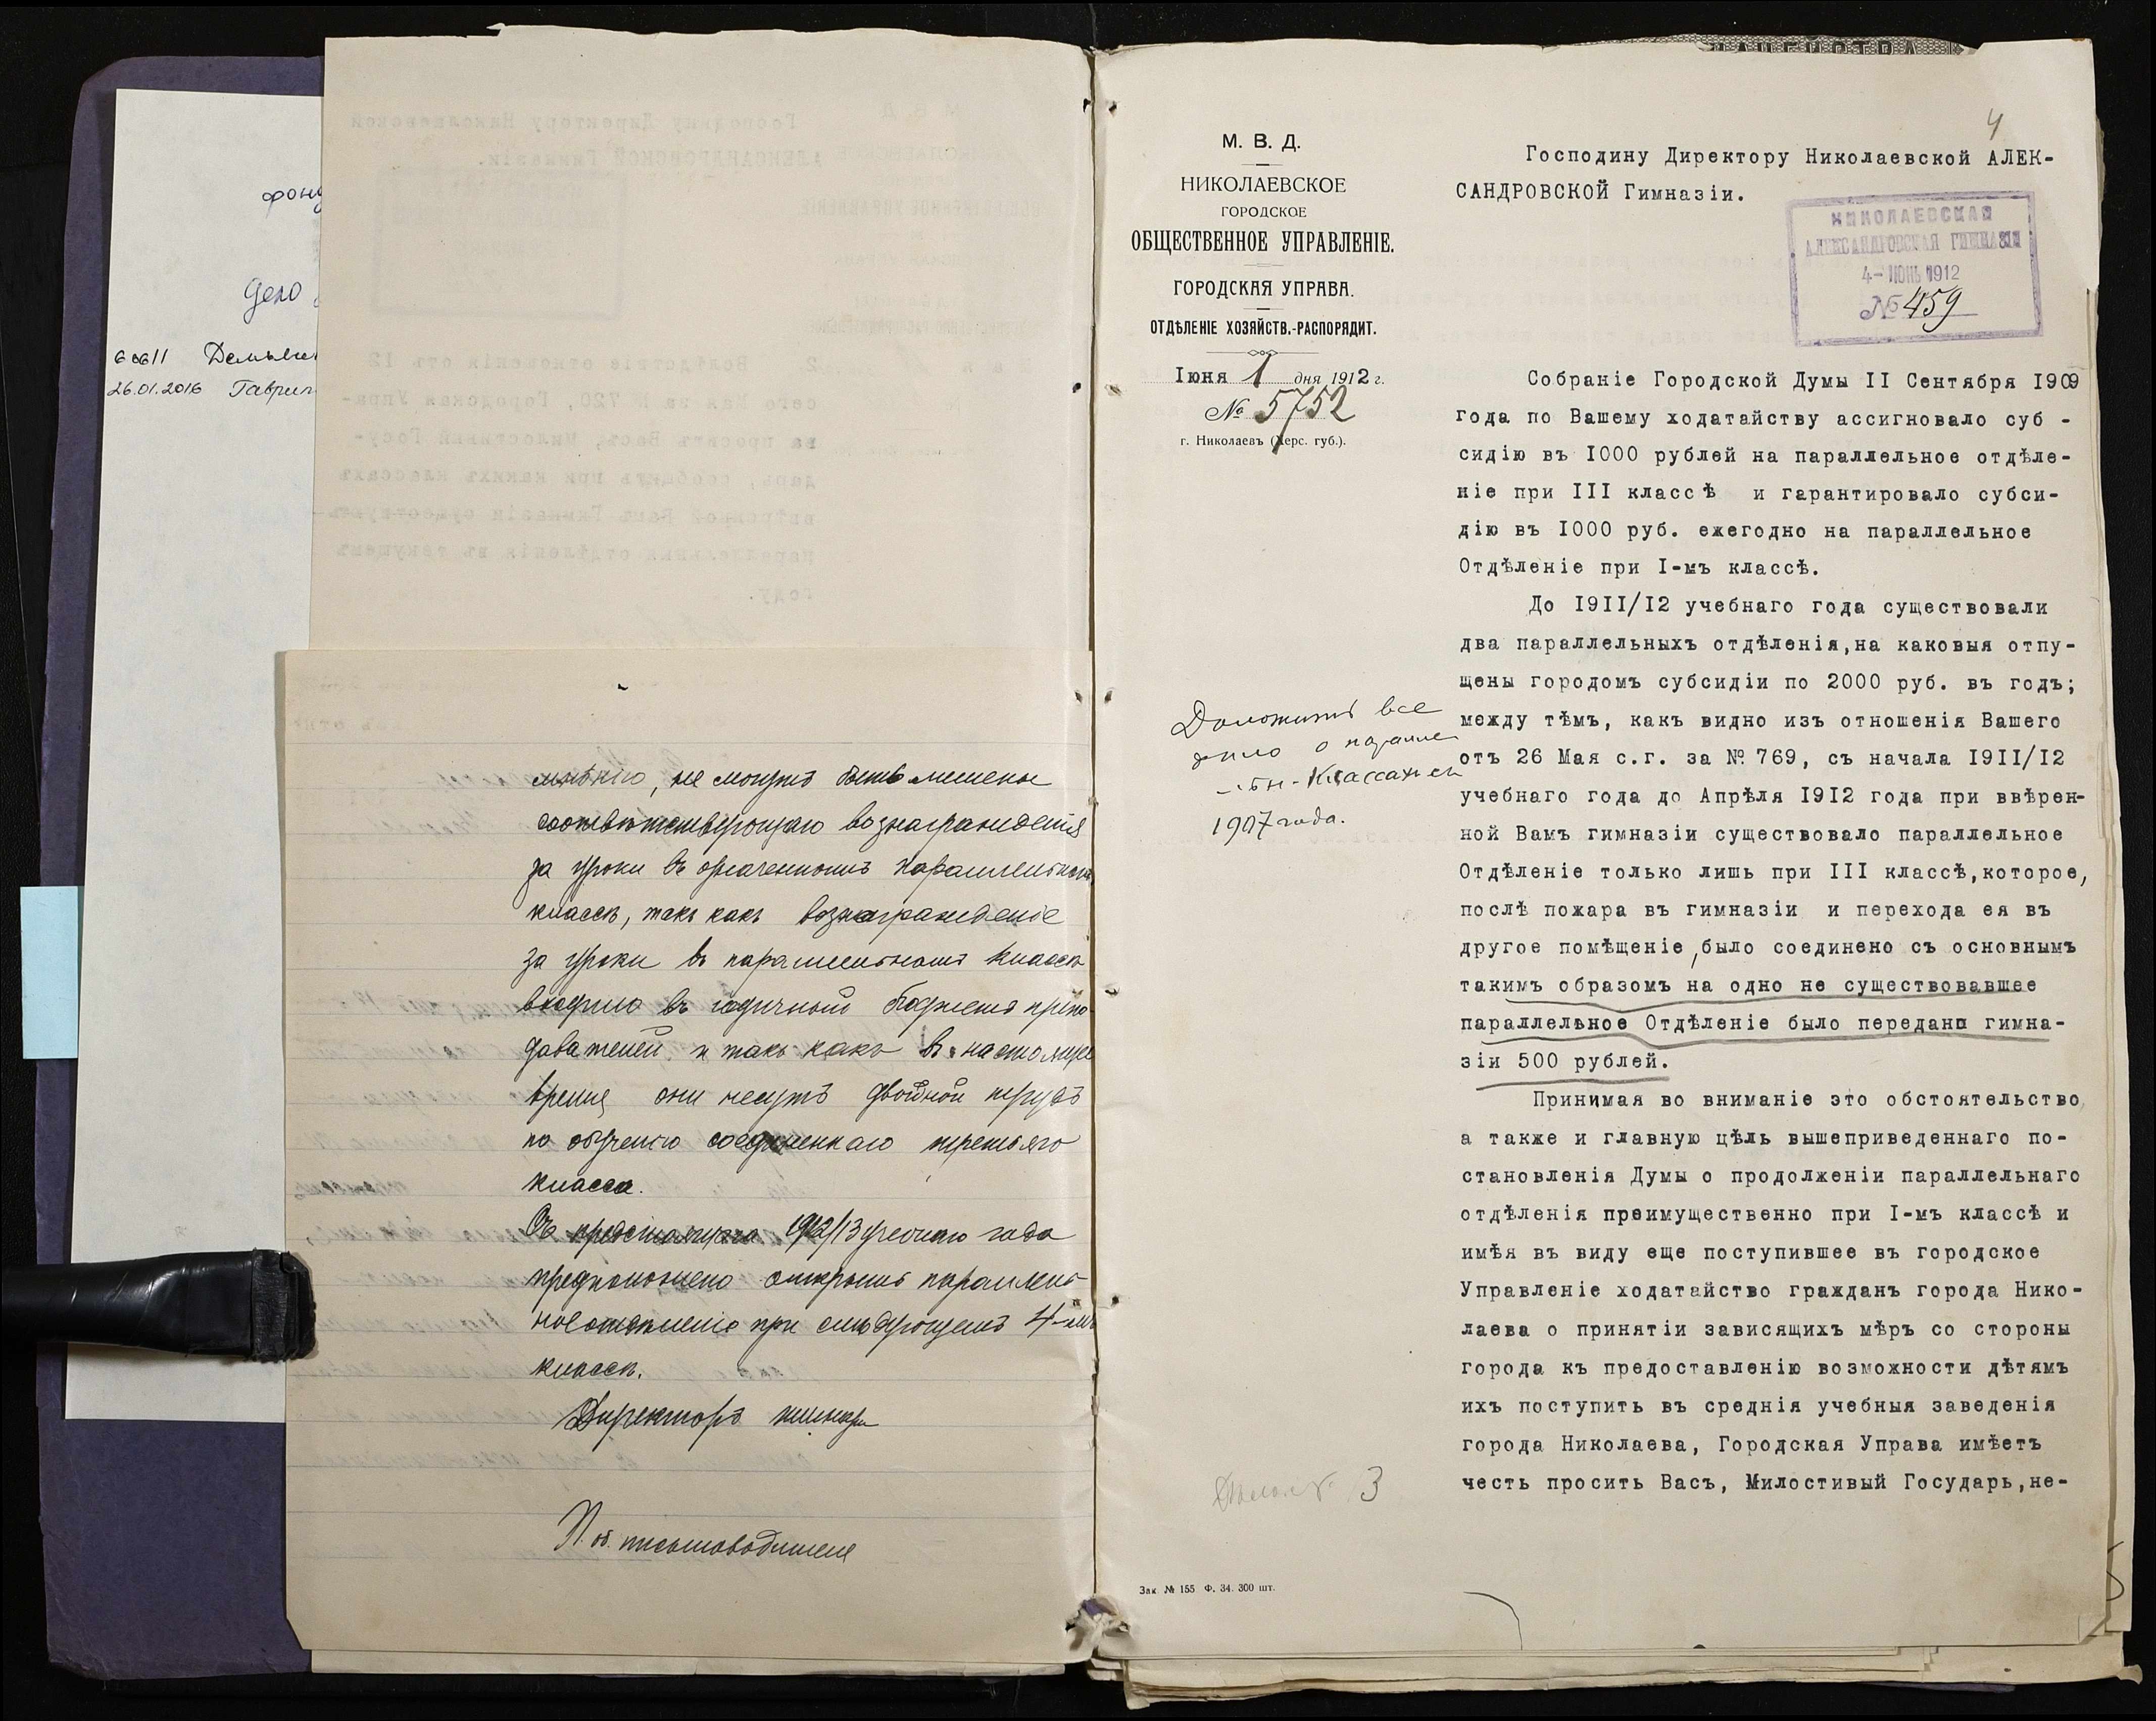 фонд
Дело
26.01.2016
мнѣнію, не могутъ быть лишены
соотвѣтствующаго вознагражденія
за уроки въ означенномъ параллельномъ
классѣ, такъ какъ вознагражденіе
за уроки въ параллельномъ классѣ
входило въ годичный бюджетъ препо-
давателей, и такъ какъ въ настоящее
время они несутъ двойной трудъ
по обученію соединеннаго третьяго
класса.
Съ предстоящаго 1912/13 учебнаго года
предположено открыть параллель-
ное отдѣленіе при слѣдующемъ 4-мъ
классѣ.
Директоръ гимназіи
И. об. письмоводителя
4
М. В. Д.
НИКОЛАЕВСКОЕ
ГОРОДСКОЕ
ОБЩЕСТВЕННОЕ УПРАВЛЕНІЕ.
ГОРОДСКАЯ УПРАВА.
ОТДѢЛЕНІЕ ХОЗЯЙСТВ.-РАСПОРЯДИТ.
Іюня 1 дня 1912 г.
№ 5752
г. Николаевъ (Херс. губ.).
Доложить все
дѣло о паралле
-льн. классахъ съ
1907 года.
3
Зак. № 155 Ф. 34. 300 шт.
Господину Директору Николаевской АЛЕК-
САНДРОВСКОЙ Гимназіи.
НИКОЛАЕВСКАЯ
АЛЕКСАНДРОВСКАЯ ГИМНАЗІЯ
4- ІЮНЬ 1912
№ 459
Собраніе Городской Думы II Сентября I909
года по Вашему ходатайству ассигновало суб -
сидію въ I000 рублей на параллельное отдѣле-
ніе при III классѣ и гарантировало субси-
дію въ I000 руб. ежегодно на параллельное
Отдѣленіе при I-мъ классѣ.
До I9II/I2 учебнаго года существовали
два параллельныхъ отдѣленія,на каковыя отпу-
щены городомъ субсидіи по 2000 руб. въ годъ;
между тѣмъ, какъ видно изъ отношенія Вашего
отъ 26 Мая с.г. за № 769, съ начала I9II/I2
учебнаго года до Апрѣля I9I2 года при ввѣрен-
ной Вамъ гимназіи существовало параллельное
Отдѣленіе только лишь при III классѣ,которое,
послѣ пожара въ гимназіи и перехода ея въ
другое помѣщеніе,было соединено съ основнымъ
такимъ образомъ на одно не существовавшее
параллельное Отдѣленіе было передано гимна-
зіи 500 рублей.
Принимая во вниманіе это обстоятельство,
а также и главную цѣль вышеприведеннаго по-
становленія Думы о продолженіи параллельнаго
отдѣленія преимущественно при I-мъ классѣ и
имѣя въ виду еще поступившее въ городское
Управленіе ходатайство гражданъ города Нико-
лаева о принятіи зависящихъ мѣръ со стороны
города къ предоставленію возможности дѣтямъ
ихъ поступить въ среднія учебныя заведенія
города Николаева, Городская Управа имѣетъ
честь просить Васъ, Милостивый Государь,не-